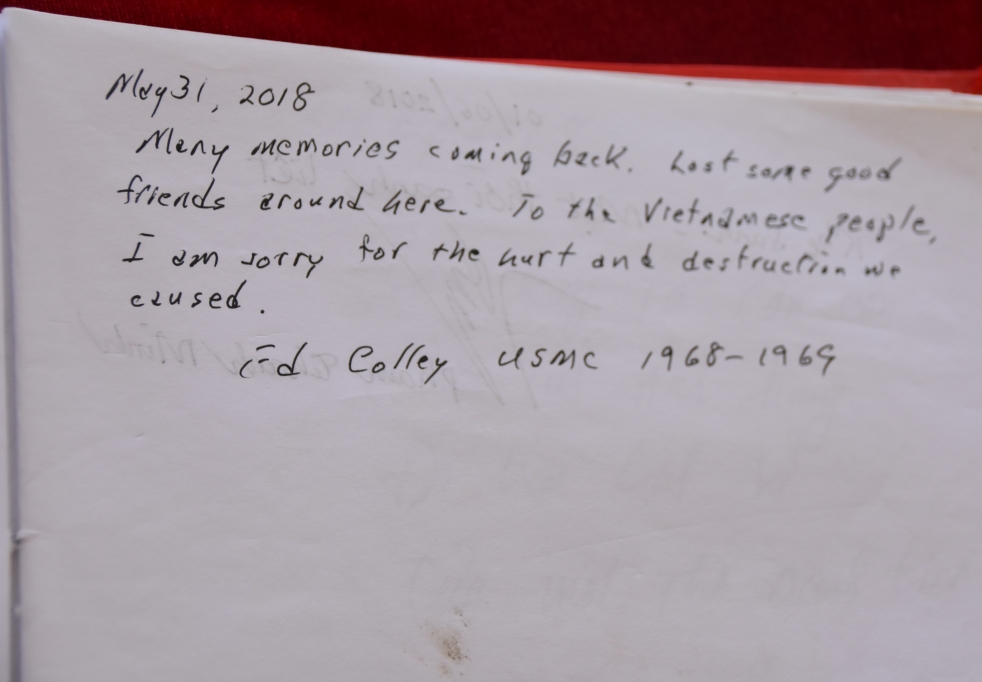 May 31, 2018
Many memories coming back. Lost some good
friends around here. To the Vietnamese people,
I am sorry for the hurt and destruction we
caused.
Ed Colley USMC 1968-1969
01/06/2018